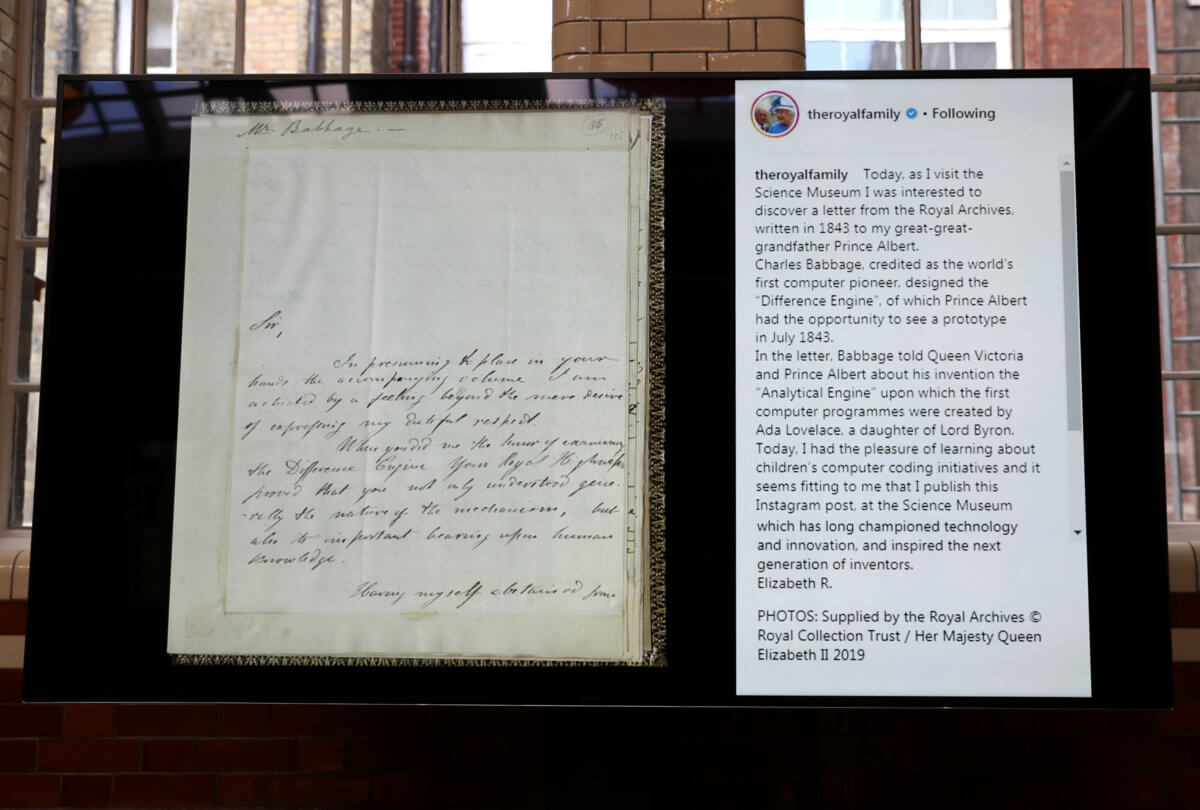 Mr. Babbage. —
186
Sir,
In presuming to place in your
hands the accompanying volume I am
actuated by a feeling beyond the mere desire
of expressing my dutiful respect.
When you did me the honor of examining
the Difference Engine Your Royal Highness
proved that you not only understood gene-
-rally the nature of the mechanism, but
also its important bearing upon human
knowledge.
Having myself abstained from
theroyalfamily • Following
theroyalfamily Today, as I visit the
Science Museum I was interested to
discover a letter from the Royal Archives,
written in 1843 to my great-great-
grandfather Prince Albert.
Charles Babbage, credited as the world's
first computer pioneer, designed the
"Difference Engine", of which Prince Albert
had the opportunity to see a prototype
in July 1843.
In the letter, Babbage told Queen Victoria
and Prince Albert about his invention the
"Analytical Engine" upon which the first
computer programmes were created by
Ada Lovelace, a daughter of Lord Byron.
Today, I had the pleasure of learning about
children's computer coding initiatives and it
seems fitting to me that I publish this
Instagram post, at the Science Museum
which has long championed technology
and innovation, and inspired the next
generation of inventors.
Elizabeth R.
PHOTOS: Supplied by the Royal Archives ©
Royal Collection Trust / Her Majesty Queen
Elizabeth II 2019